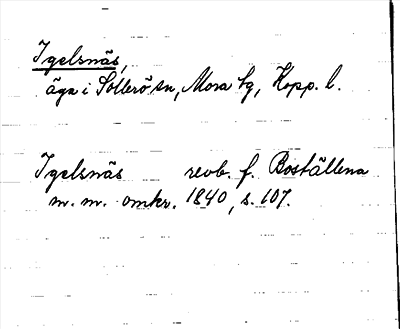 Igelsnäs,
äga i Sollerö sn, Mora tg, Kopp. l.
Igelsnäs revb. f. Boställena
m. m. omkr. 1840, s. 107.